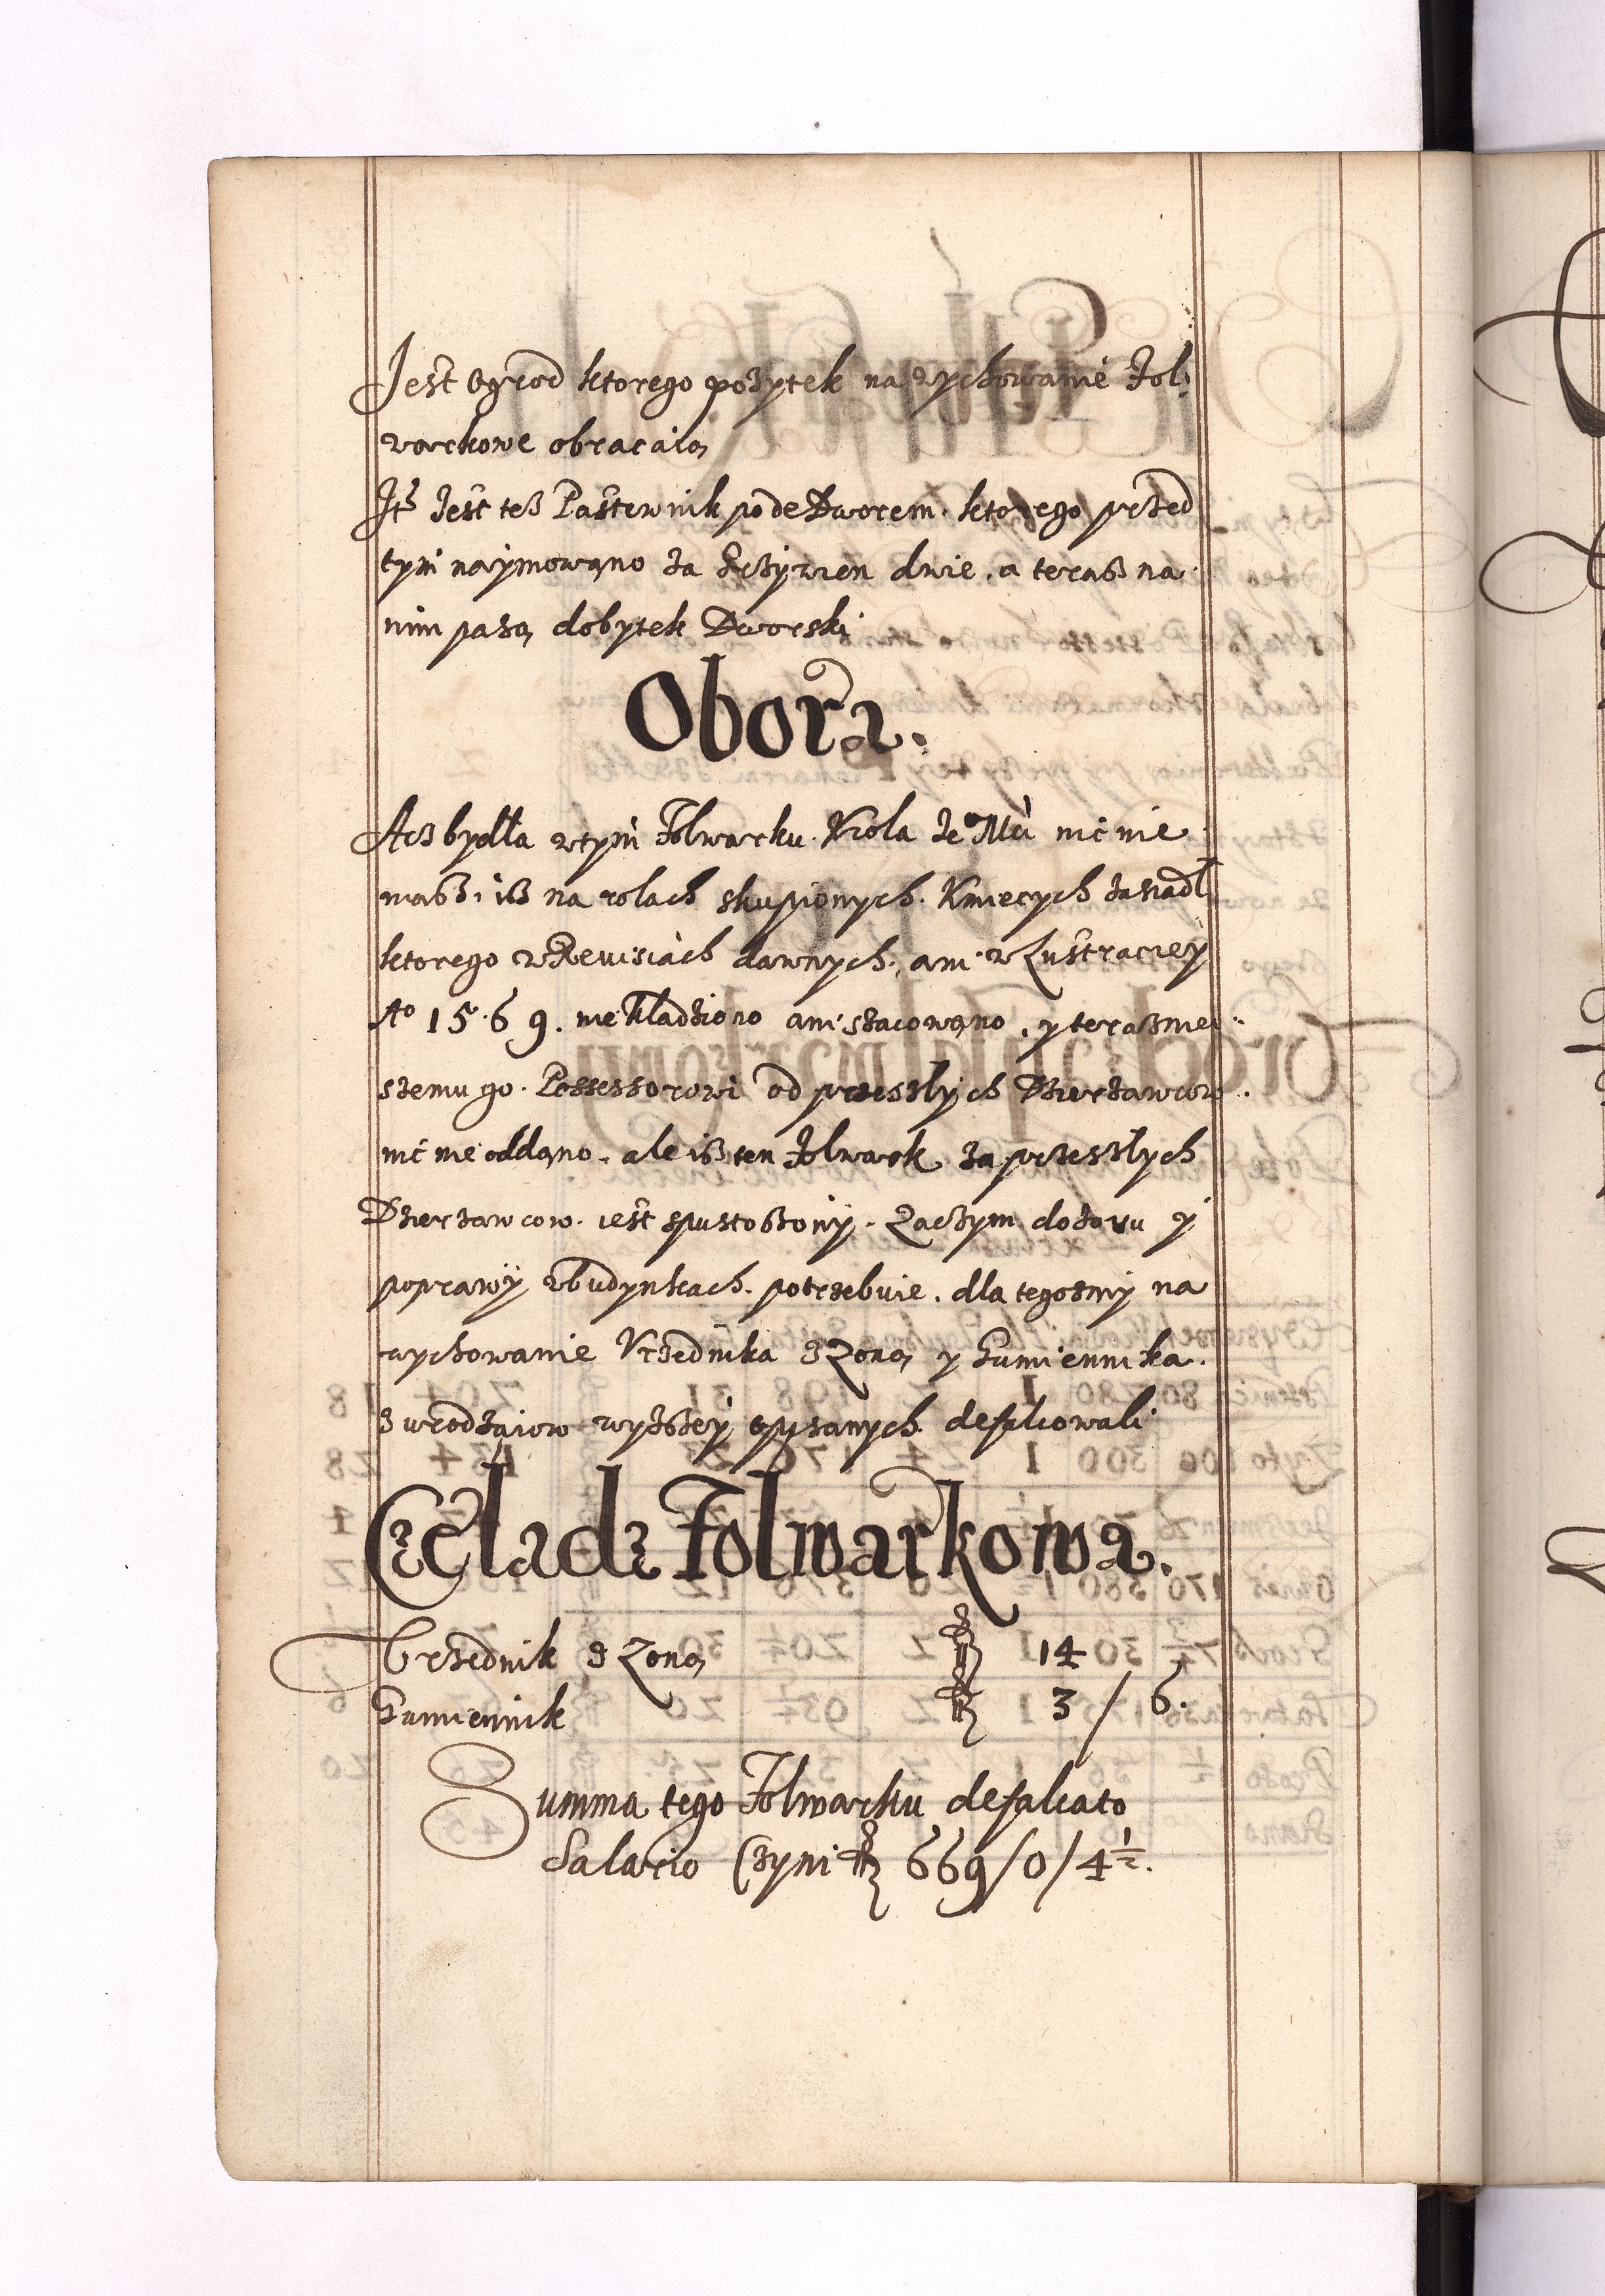 Jest Ogrod ktorego pożytek na wychowanie Fol,
warkowe obracaią
Itē Jest teß Pastewnik pode Dworem. ktorego przed
tym naymowano za Grzywien dwie. a teraß na
nim pasą dobytek Dworski
Obora.
Acz bydła w tym Folwarku Krola Je° Mci nic nie
maß. iß na rolach skupionych. Kmiecych zasiadł
ktorego w Rewisiach dawnych, ani w Lustraciey
A° 1569. nie kładziono ani szacowano. y teraßnie
szemu go Possessorowi od przeszłych Dzierzawcow
nic nie oddano. ale iß ten Folwark za przeszłych
Dzierzawcow. iest spustoßony. Zaczym dozoru y
poprawy w budynkach. potrzebuie. dla tegosmy na
wychowanie Vrzednika z Zoną y Gumiennika.
z urodzaiow wyżßey opisanych defalcowali
Czeladz Folwarkowa.
Vrzednik z Zoną fl 14
Gumiennik fl 3 / 6.
Summa tego Folwarku defalcato
Salario Czyni fl 669/0/4½.